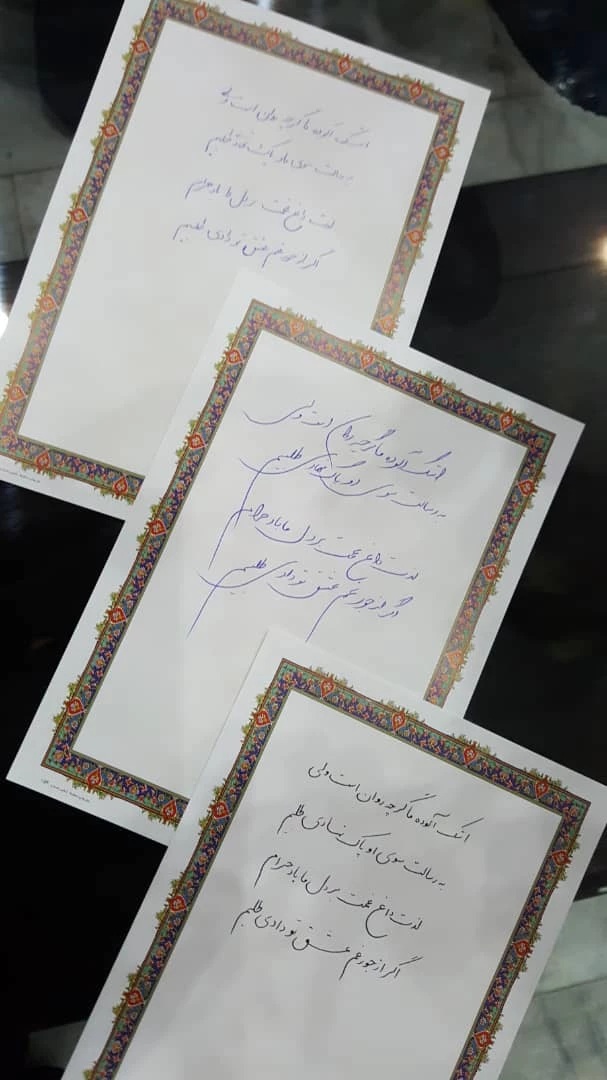 اشک آلوده ما گرچه روان است ولی
به رسالت سوی او پاک نهادی طلبیم
لذت داغ غمت بر دل ما باد حرام
اگر از جور غم عشق تو دادی طلبیم
اشک آلوده ما گرچه روان است ولی
به رسالت سوی او پاک نهادی طلبیم
لذت داغ غمت بر دل ما باد حرام
اگر از جور غم عشق تو دادی طلبیم
اشک آلوده ما گرچه روان است ولی
به رسالت سوی او پاک نهادی طلبیم
لذت داغ غمت بر دل ما باد حرام
اگر از جور غم عشق تو دادی طلبیم